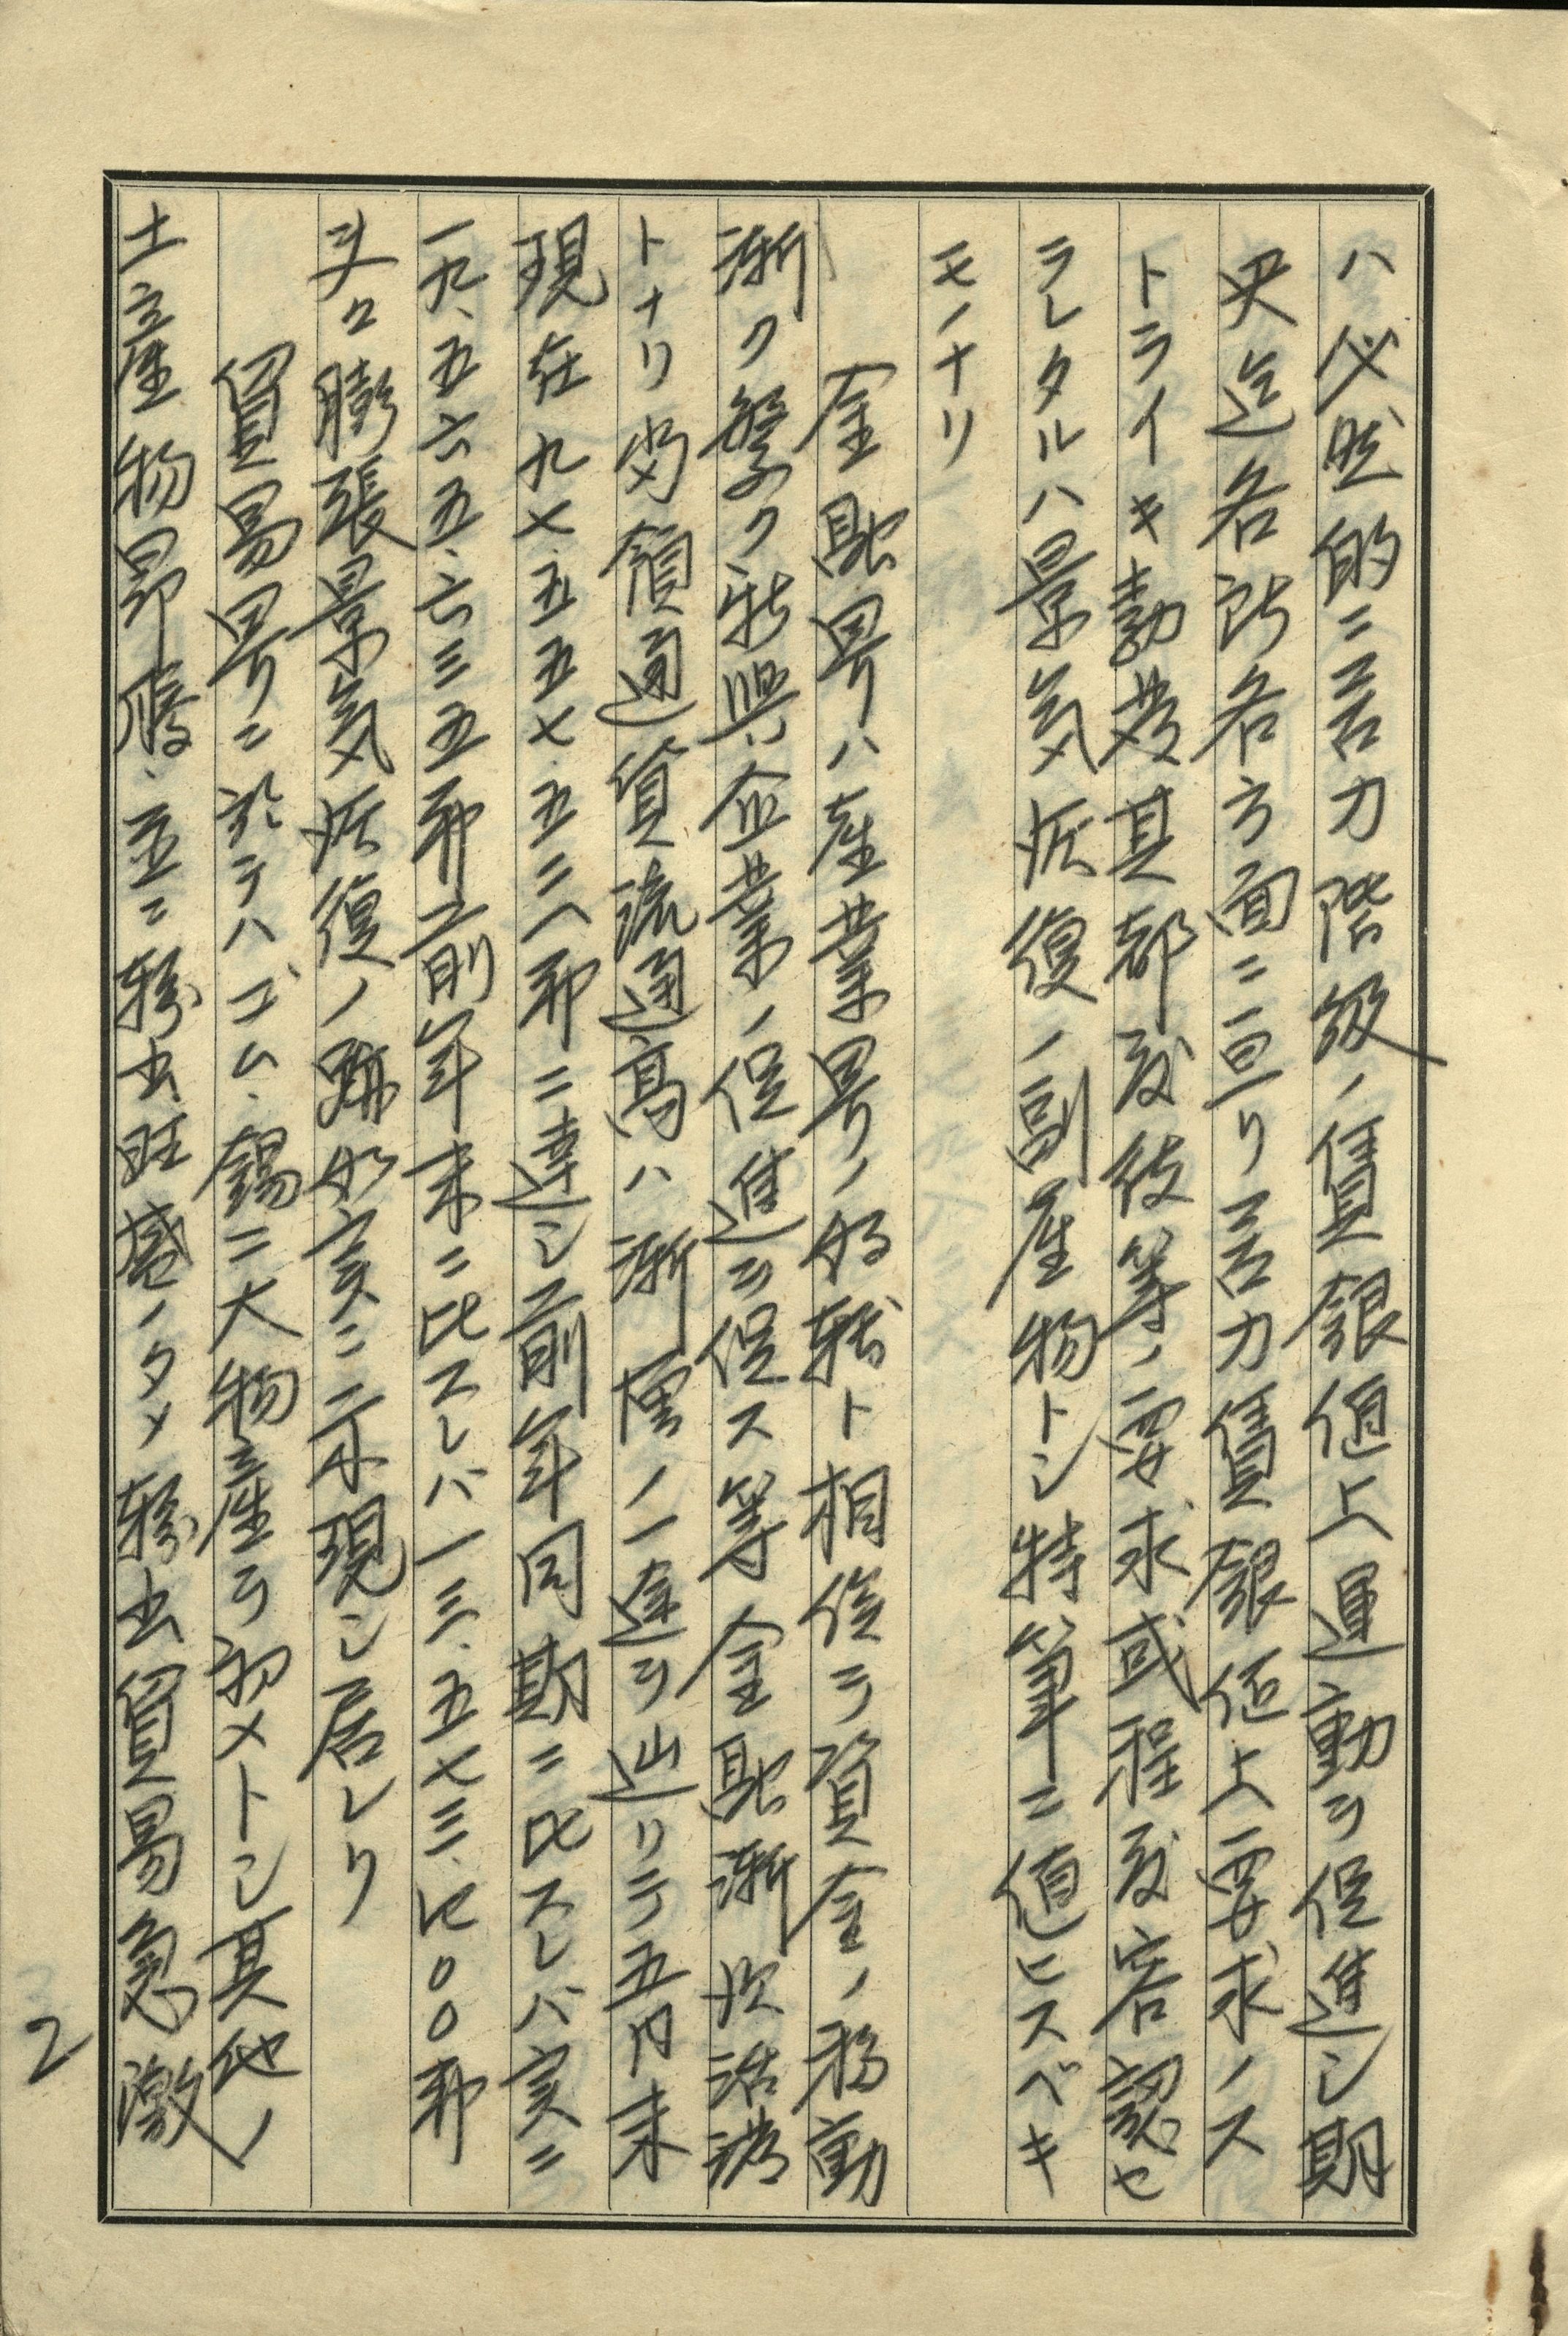 ハ必然的ニ苦力階級ノ賃銀値上運動ヲ促進シ期
央迄各所各方面ニ亘リ苦力賃銀値上要求ノス
トライキ勃発其都度彼等ノ要求或程度容認セ
ラレタルハ景気恢復ノ副産物トシ特筆ニ値ヒスベキ
モノナリ
金融界ハ産業界ノ好転ト相俟テ資金ノ移動
漸ク繁ク新興企業ノ促進ヲ促ス等金融漸次活溌
トナリ尚領通貨流通高ハ漸増ノ一途ヲ辿リテ五月末
現在九七、五五七、五二八弗ニ達シ前年同期ニ比スレバ実ニ
一九、五六五、六三五弗前年末ニ比スレバ一三、五七三、七〇〇弗
ヲ膨張景気恢復ノ跡如実ニ示現シ居レリ
貿易界ニ於テハゴム、錫二大物産ヲ初メトシ其他ノ
土産物昂騰、並ニ輸出旺盛ノタメ輸出貿易急激
2